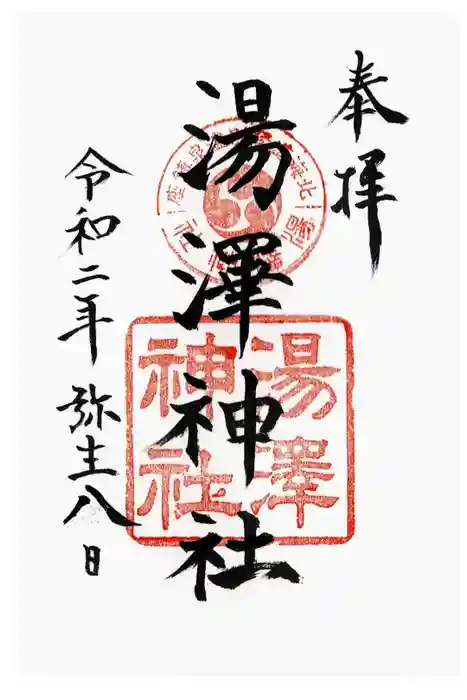 奉拝
湯澤神社
令和二年 弥生八日
湯澤
神社